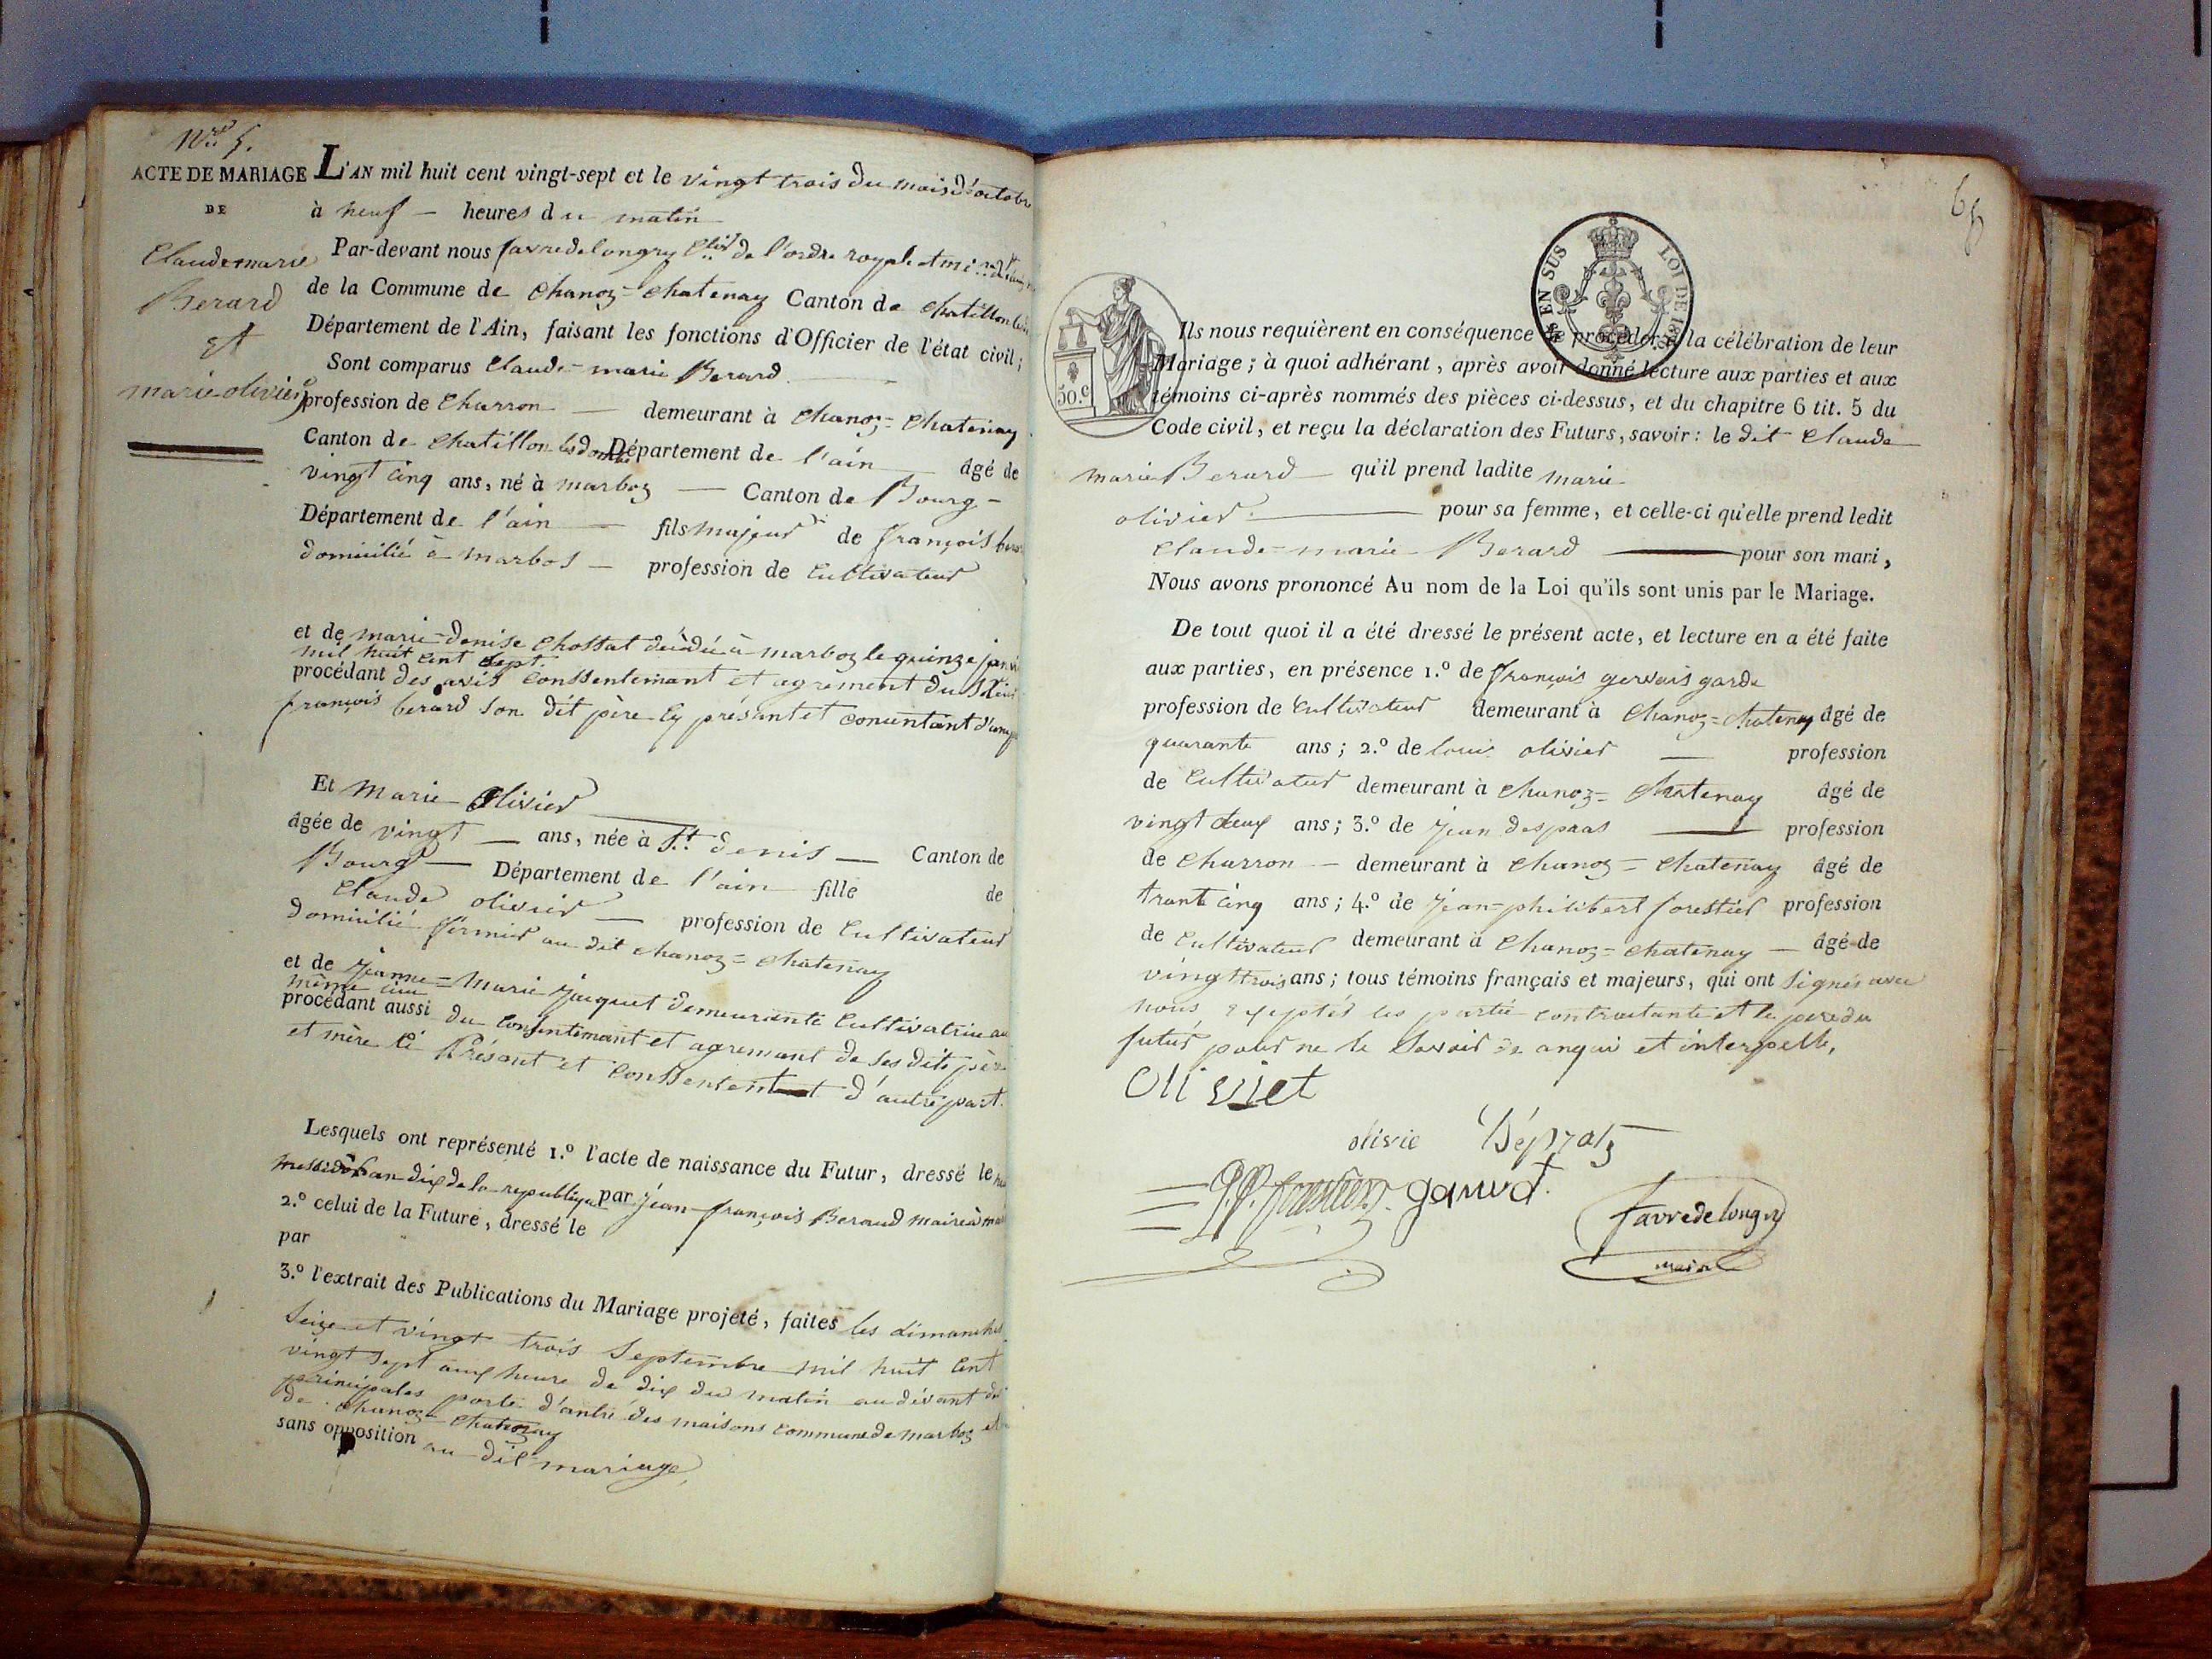 N.ro 5.
ACTE DE MARIAGE
DE
Claude marie
Berard
et
marie olivier
L'AN mil huit cent vingt-sept et le vingt trois du mois d'octobre
à neuf — heures du matin
Par-devant nous favre de longry de l'ordre royale
de la Commune de Chanoz=Chatenay Canton de Chatillon
Département de l'Ain, faisant les fonctions d'Officier de l'état civil;
Sont comparus Claude=marie Berard
profession de Charron — demeurant à Chanoz=Chatenay
Canton de Chatillon les dombe Département de l'ain âgé de
vingt cinq ans, né à marboz — Canton de Bourg —
Département de l'ain — fils majeur de françois
domicilié à marbos — profession de Cultivateur
et de marie=denise Chossat décédé à marboz le quinze
mil huit cent sept.
procédant des avis consentemant et agrément du
françois berard son dit père cy présant et
Et Marie Olivier
âgée de vingt — ans, née à S.t denis — Canton de
Bourg — Département de l'ain fille de
Claude olivier — profession de Cultivateur
domicilié fermier au dit chanoz=chatenay
et de Jeanne=Marie Jacquet demeurante Cultivatrice au
même lieu
procédant aussi du consentemant et agremant de ses dits père
et mère ci présant et consentent d'autre part.
Lesquels ont représenté 1.º l'acte de naissance du Futur, dressé le
messidor an dix de la republique par Jean françois Beraud maire à
2.º celui de la Future, dressé le
par
3.º l'extrait des Publications du Mariage projeté, faites les dimanches
Seize et vingt trois Septembre mil huit Cent
vingt Sept aux heure de dix du matin au dévant des
principales porte d'antré des maisons commune de marboz et
de chanoz=chatenay
sans opposition au dit mariage,
65
S EN SUS LOI DE
50.C
Ils nous requièrent en conséquence de procéder à la célébration de leur
Mariage; à quoi adhérant, après avoir donné lecture aux parties et aux
témoins ci-après nommés des pièces ci-dessus, et du chapitre 6 tit. 5 du
Code civil, et reçu la déclaration des Futurs, savoir: le dit Claude
marie Berard — qu'il prend ladite marie
olivier — pour sa femme, et celle-ci qu'elle prend ledit
Claude=marie Berard — pour son mari,
Nous avons prononcé Au nom de la Loi qu'ils sont unis par le Mariage.
De tout quoi il a été dressé le présent acte, et lecture en a été faite
aux parties, en présence 1.º de françois gervais garde
profession de Cultivateur demeurant à Chanoz=chatenay âgé de
quarante ans; 2.º de louis olivier — profession
de Cultivateur demeurant à Chanoz=Chatenay âgé de
vingt deux ans; 3.º de Jean despras — profession
de Charron — demeurant à Chanoz=Chatenay âgé de
trante cinq ans; 4.º de Jean=philibert forestier profession
de Cultivateur demeurant à Chanoz=chatenay — âgé de
vingt trois ans; tous témoins français et majeurs, qui ont Signés avec
nous exeptés les partie contractante et le pere du
futur pour ne le Savoir de anquis et interpellé,
Olivier
olivie Déspras
J.P. forestier garde
favre de longry
maire